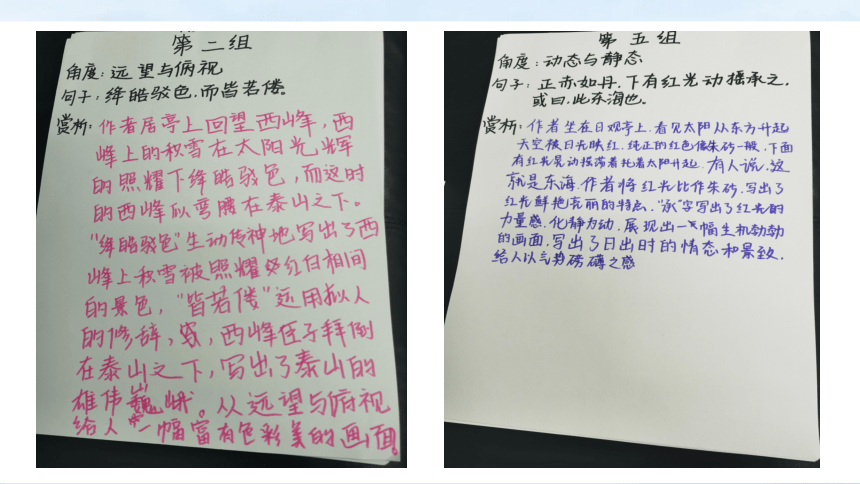 第二组
角度:远望与俯视
句子:绛皓驳色,而皆若偻。
赏析:作者居亭上回望西峰,西
峰上的积雪在太阳光辉
的照耀下绛皓驳色,而这时
的西峰似弯腰在泰山之下。
“绛皓驳色”生动传神地写出了西
峰上积雪被照耀红白相间
的景色,“皆若偻”运用拟人
的修辞,西峰侄子拜倒
在泰山之下,写出了泰山的
雄伟巍峨。从远望与俯视
给人一幅富有色彩美的画面。
第五组
角度:动态与静态
句子:正赤如丹,下有红光动摇承之,
或曰,此东海也。
赏析:作者坐在日观亭上,看见太阳从东方升起
天空被日光映红,纯正的红色像朱砂一般,下面
有红光晃动摇荡着托着太阳升起,有人说,这
就是东海.作者将红光比作朱砂,写出了
红光鲜艳亮丽的特点,“承”字写出了红光的
力量感,化静为动,展现出一幅生机勃勃
的画面,写出了日出时的情态和景致,
给人以气势磅礴之感